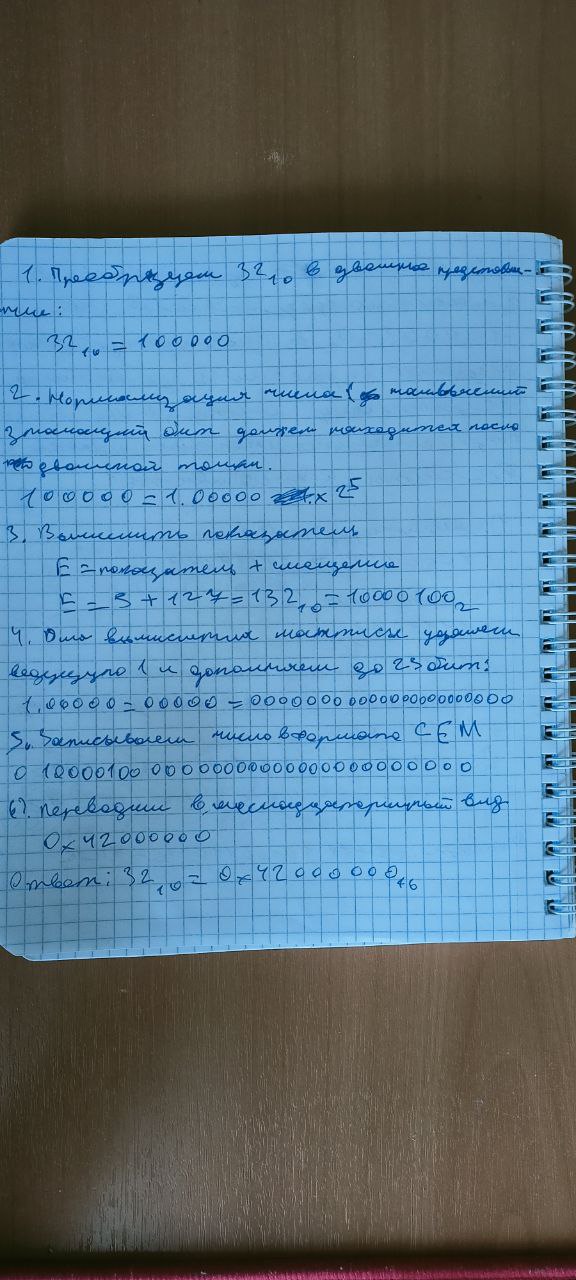 1. Преобразуем 32₁₀ в двоичное представле-
ние:
32₁₀ = 100000
2. Нормализация числа (
значащий бит должен находится после
двоичной точки.
100000 = 1.00000 × 2⁵
3. Вычислить показатель
E = показатель + смещение
E = 5 + 127 = 132₁₀ = 10000100₂
4. Для вычисления мантиссы удаляем
ведущую 1 и дополняем до 23 бит:
1.00000 = 00000 = 00000000000000000000000
5. Записываем число в формате СЕМ
0 10000100 00000000000000000000000
6). переводим в шестнадцатеричный вид
0x42000000
Ответ: 32₁₀ = 0x42000000₁₆